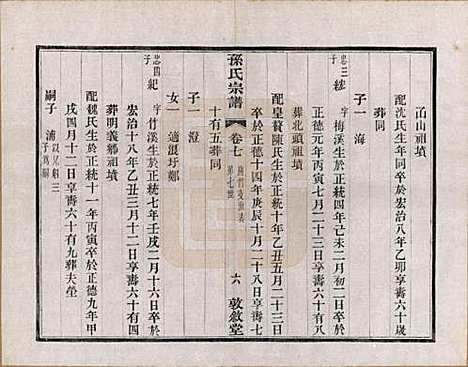 凸山祖墳
配沈氏生於年同卒於宏治八年乙卯享壽六十歲
葬同
子一 海
忠三子 綋 字梅溪生於正統四年己未二月初二日卒於
正德元年丙寅七月二十三日享壽六十有八
葬北頭祖墳
配皇贅陳氏生於正統十年乙丑五月二十三日
卒於正德十四年庚辰十月二十八日享壽七
孫氏宗譜 卷七 第七世 六 敦敘堂
十有五葬同
子一 澄
女一 適浪圩鄭
忠四子 紀 字竹溪生於正統七年壬戌二月十六日卒於
宏治十八年乙丑三月十二日享壽六十有四
葬明義鄉祖墳
配魏氏生於正統十一年丙寅卒於正德九年甲
戌四月十二日享壽六十有九葬夫塋
嗣子 浦 以兄綋三子為嗣